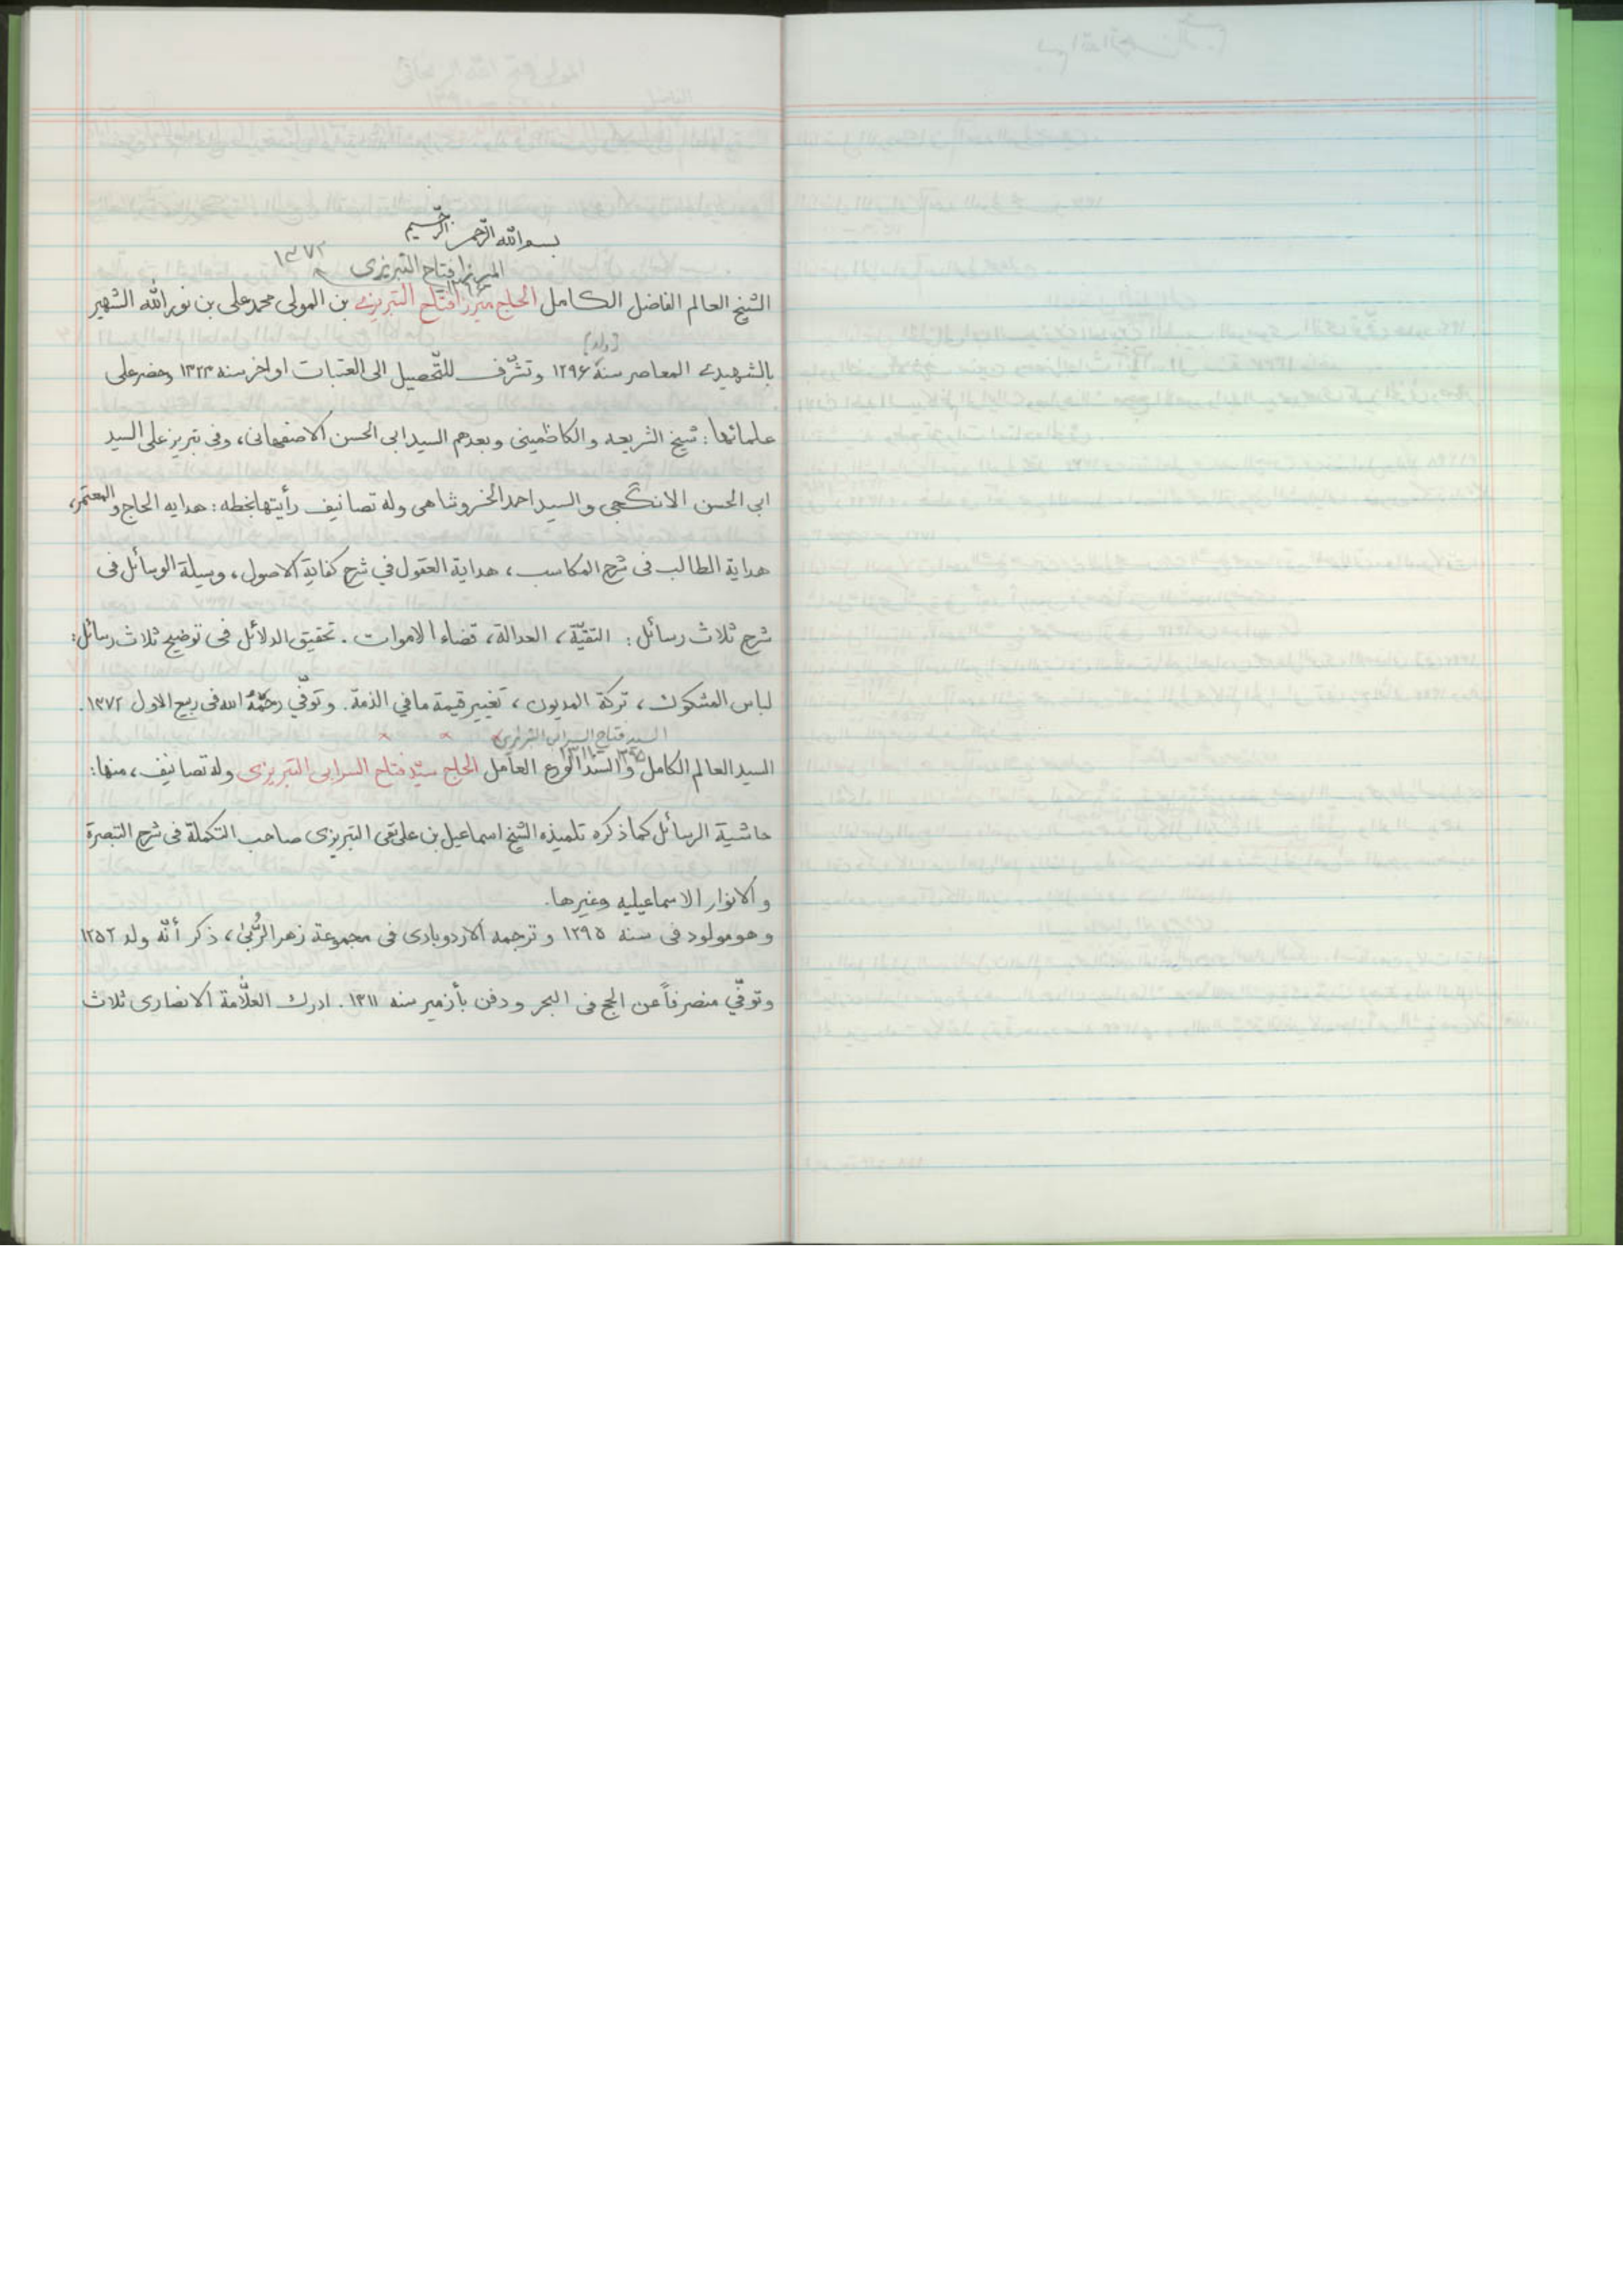 بسم الله الرحمن الرحيم
الميرزا فتاح التبريزى ١٣٧٢
الشيخ العالم الفاضل الكامل الحاج ميرزا فتاح التبريزى بن المولى محمد على بن نور الله الشهير
[ولد]
بالشهيدى المعاصر سنة ١٢٩۶ وتشرّف للتّحصيل الى العتبات اواخر سنه ١٣٢٣ وحضر على
علمائها: شيخ الشريعه والكاظمينى وبعدهم السيد ابى الحسن الاصفهانى، وفى تبريز على السيد
ابى الحسن الانگجى والسيد احمد الخسروشاهى وله تصانيف رأيتها بخطه: هدايه الحاج والمعتمر،
هداية الطالب فى شرح المكاسب، هداية العقول في شرح كفاية الاصول، وسيلة الوسائل فى
شرح ثلاث رسائل: التقيّة، العدالة، قضاء الاموات. تحقيق الدلائل فى توضيح ثلاث رسائل:
لباس المشكوك، تركة المديون، تغيير قيمة ما في الذمة. وتوفّي رحمه الله فى ربيع الاول ١٣٧٢.
السيد فتاح السرابى التبريزى
السيد العالم الكامل والسند الورع العامل الحاج سيّد فتاح السرابى التبريزى وله تصانيف، منها:
حاشية الرسائل كما ذكره تلميذه الشيخ اسماعيل بن على نقى التبريزى صاحب التكملة فى شرح التبصرة
والانوار الاسماعيليه وغيرها.
وهو مولود فى سنه ١٢٩٥ وترجمه الاردوبادى فى مجموعة زهر الرُّبىٰ، ذكر أنّه ولد ١٢٥٢
وتوفّي منصرفاً عن الحج فى البحر ودفن بأزمير سنه ١٣١١. ادرك العلّامة الانصارى ثلاث